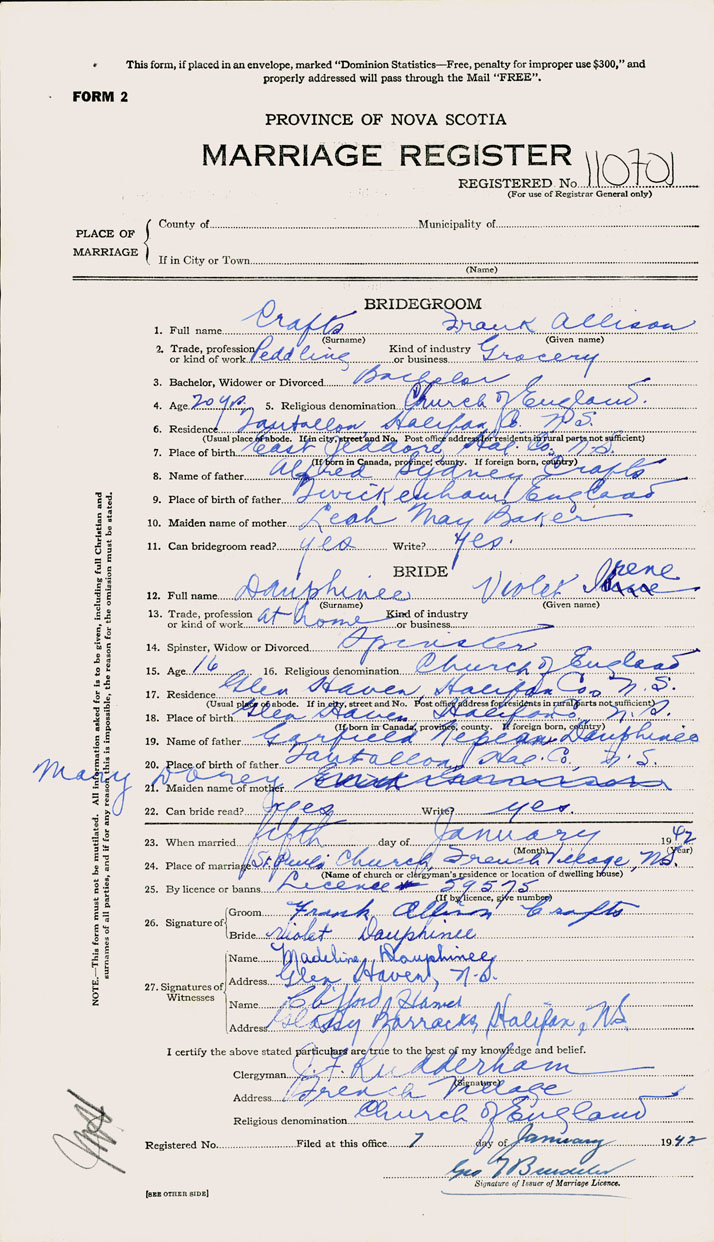 This form, if placed in an envelope, marked “Dominion Statistics—Free, penalty for improper use $300,” and
properly addressed will pass through the Mail “FREE”.
FORM 2
PROVINCE OF NOVA SCOTIA
MARRIAGE REGISTER
REGISTERED No. 110701
(For use of Registrar General only)
PLACE OF MARRIAGE
County of Municipality of
If in City or Town
(Name)
BRIDEGROOM
1. Full name Crafts Frank Allison
(Surname) (Given name)
2. Trade, profession or kind of work Peddling Kind of industry or business Grocery
3. Bachelor, Widower or Divorced Bachelor
4. Age 20 yrs. 5. Religious denomination Church of England.
6. Residence Tantallon, Halifax Co. N.S.
(Usual place of abode. If in city, street and No. Post office address for residents in rural parts not sufficient)
7. Place of birth East Jeddore Hal. Co. N.S.
(If born in Canada, province, county. If foreign born, country)
8. Name of father Alfred Sydney Crafts
9. Place of birth of father Twickenham, England
10. Maiden name of mother Leah May Baker
11. Can bridegroom read? yes Write? yes.
BRIDE
12. Full name Dauphinee Violet Irene
(Surname) (Given name)
13. Trade, profession or kind of work at home Kind of industry or business
14. Spinster, Widow or Divorced Spinster
15. Age 16 16. Religious denomination Church of England
17. Residence Glen Haven, Halifax Co., N.S.
(Usual place of abode. If in city, street and No. Post office address for residents in rural parts not sufficient)
18. Place of birth Glen Haven Halifax Co N.S.
(If born in Canada, province, county. If foreign born, country)
19. Name of father Garfield Dauphinee
20. Place of birth of father Tantallon, Hal. Co., N.S.
21. Maiden name of mother Mary Dorey
22. Can bride read? yes Write? yes.
23. When married fifth day of January 1942
(Month) (Year)
24. Place of marriage St. Paul's Church, French Village, N.S.
(Name of church or clergyman's residence or location of dwelling house)
25. By licence or banns Licence # 59575
(If by licence, give number)
26. Signature of
Groom Frank Allison Crafts
Bride Violet Dauphinee
27. Signatures of Witnesses
Name Madeline Dauphinee
Address Glen Haven, N.S.
Name Clifford
Address Barracks, Halifax, N.S.
I certify the above stated particulars are true to the best of my knowledge and belief.
Clergyman Rudderham
(Signature)
Address French Village
Religious denomination Church of England
Registered No. Filed at this office 7 day of January 1942
Geo
Signature of Issuer of Marriage Licence.
[SEE OTHER SIDE]
NOTE.—This form must not be mutilated. All information asked for is to be given, including full Christian and
surnames of all parties, and if for any reason this is impossible, the reason for the omission must be stated.